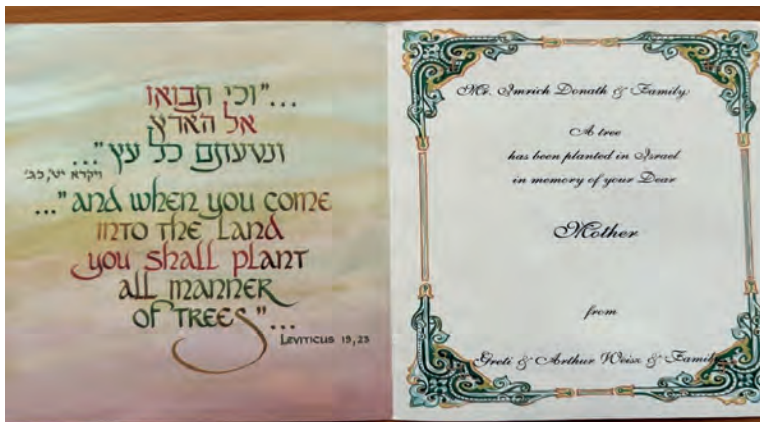 ..."וכי תבואו
אל הארץ
ונטעתם כל עץ"...
ויקרא יט', כג'
..."and when you come
into the Land
you shall plant
all manner
of trees"...
Leviticus 19,23
Mr. Imrich Donath & Family
A tree
has been planted in Israel
in memory of your Dear
Mother
from
Greti & Arthur Weisz & Family